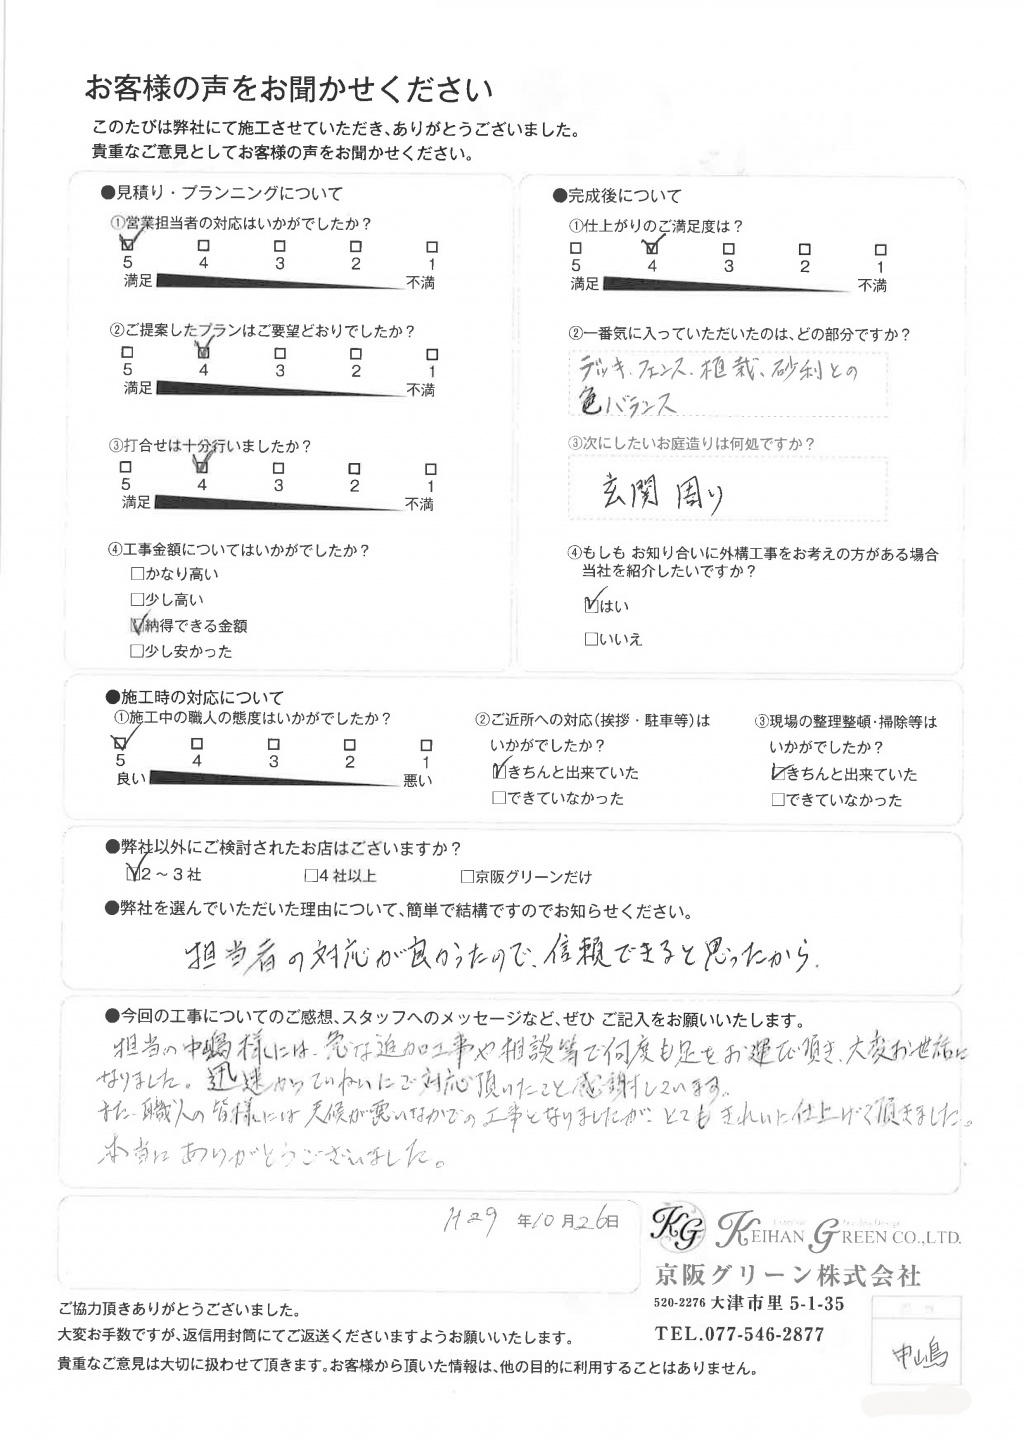 お客様の声をお聞かせください
このたびは弊社にて施工させていただき、ありがとうございました。
貴重なご意見としてお客様の声をお聞かせください。
●見積り・プランニングについて
①営業担当者の対応はいかがでしたか？
☑ □ □ □ □
5 4 3 2 1
満足 不満
②ご提案したプランはご要望どおりでしたか？
□ ☑ □ □ □
5 4 3 2 1
満足 不満
③打合せは十分行いましたか？
□ ☑ □ □ □
5 4 3 2 1
満足 不満
④工事金額についてはいかがでしたか？
□かなり高い
□少し高い
☑納得できる金額
□少し安かった
●完成後について
①仕上がりのご満足度は？
□ ☑ □ □ □
5 4 3 2 1
満足 不満
②一番気に入っていただいたのは、どの部分ですか？
デッキ、フェンス、植栽、砂利との
色バランス
③次にしたいお庭造りは何処ですか？
玄関周り
④もしも お知り合いに外構工事をお考えの方がある場合
当社を紹介したいですか？
☑はい
□いいえ
●施工時の対応について
①施工中の職人の態度はいかがでしたか？
☑ □ □ □ □
5 4 3 2 1
良い 悪い
②ご近所への対応（挨拶・駐車等）は
いかがでしたか？
☑きちんと出来ていた
□できていなかった
③現場の整理整頓・掃除等は
いかがでしたか？
☑きちんと出来ていた
□できていなかった
●弊社以外にご検討されたお店はございますか？
☑2～3社 □4社以上 □京阪グリーンだけ
●弊社を選んでいただいた理由について、簡単で結構ですのでお知らせください。
担当者の対応が良かったので、信頼できると思ったから。
●今回の工事についてのご感想、スタッフへのメッセージなど、ぜひ ご記入をお願いいたします。
担当の中嶋様には、急な追加工事や相談等で何度も足をお運び頂き、大変お世話に
なりました。迅速かつていねいにご対応頂いたこと感謝しています。
また、職人の皆様には天候が悪いなかでの工事となりましたが、とてもきれいに仕上げて頂きました。
本当にありがとうございました。
H29 年10月26日
KG KEIHAN GREEN CO.,LTD.
京阪グリーン株式会社
520-2276 大津市里 5-1-35
TEL.077-546-2877
中嶋
ご協力頂きありがとうございました。
大変お手数ですが、返信用封筒にてご返送くださいますようお願いいたします。
貴重なご意見は大切に扱わせて頂きます。お客様から頂いた情報は、他の目的に利用することはありません。